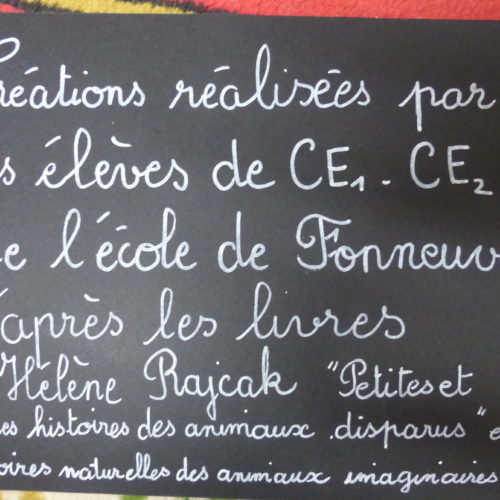 Créations réalisées par
s élèves de CE1. CE2
e l'école de Fonneuv
'après les livres
Hélène Rajcak "Petites et
es histoires des animaux disparus" e
oires naturelles des animaux imaginaires